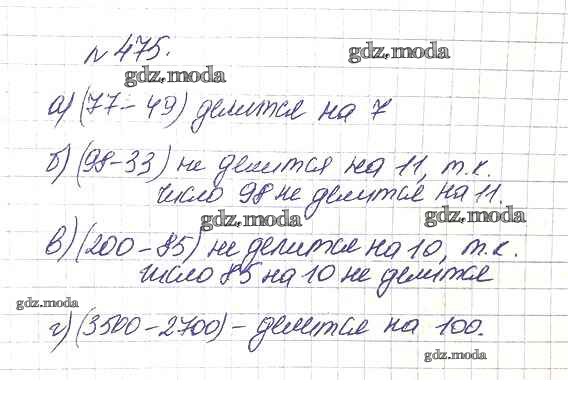 № 475.
gdz.moda
gdz.moda
а) (77-49) делится на 7
б) (98-33) не делится на 11, т.к.
число 98 не делится на 11.
gdz.moda
gdz.moda
в) (200-85) не делится на 10, т.к.
число 85 на 10 не делится
gdz.moda
г) (3500-2700) - делится на 100.
gdz.moda